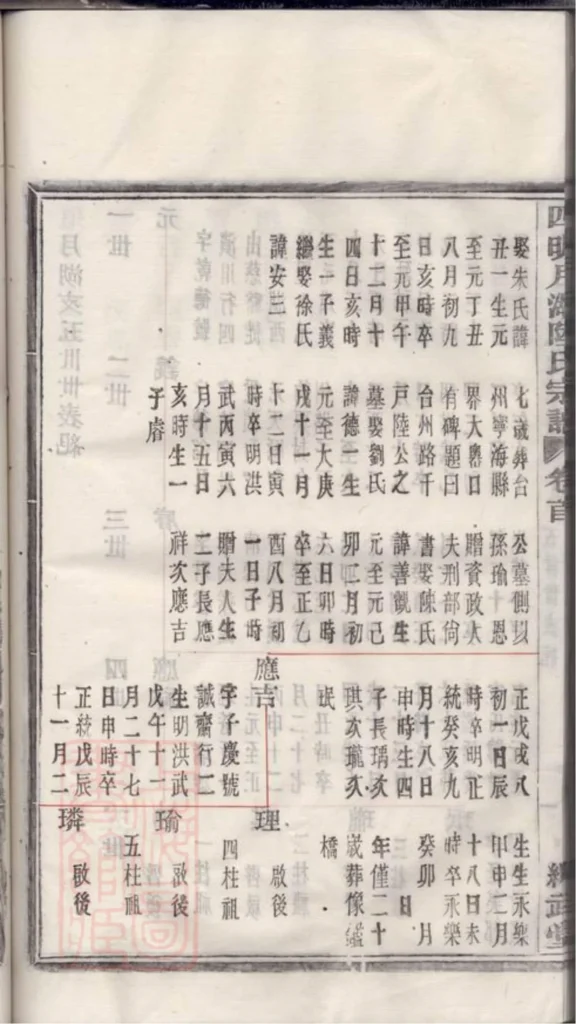 四明月湖陸氏宗譜 卷首
娶朱氏諱
丑一生元
至元丁丑
八月初九
日亥時卒
至元甲午
十二月十
四日亥時
生一子義
繼娶徐氏
諱安三
七歲葬台
州寧海縣
界大嶴口
有碑題曰
台州路千
戶陸公之
墓娶劉氏
諱德一生
元至大庚
戌十一月
十二日寅
時卒明洪
武丙寅六
月十五日
亥時生一
子睿
公墓側以
孫瑜十恩
贈資政大
夫刑部尚
書娶陳氏
諱善觀生
元至元己
卯二月初
六日卯時
卒至正乙
酉八月初
一日子時
贈夫人生
二子長應
祥次應吉
正戊戌八
初一日辰
時卒明正
統癸亥九
月十八日
申時生四
子長瑀次
珙次瓏次
珉
應吉
字子慶號
誠齋行二
生明洪武
戊午十一
月二十七
日申時卒
正統戊辰
十一月二
生生永樂
甲申二月
十八日未
時卒永樂
癸卯 月
日
年僅二十
歲葬像鑑
橋
理
啟後
四柱祖
瑜
啟後
五柱祖
璘
啟後
繩武堂